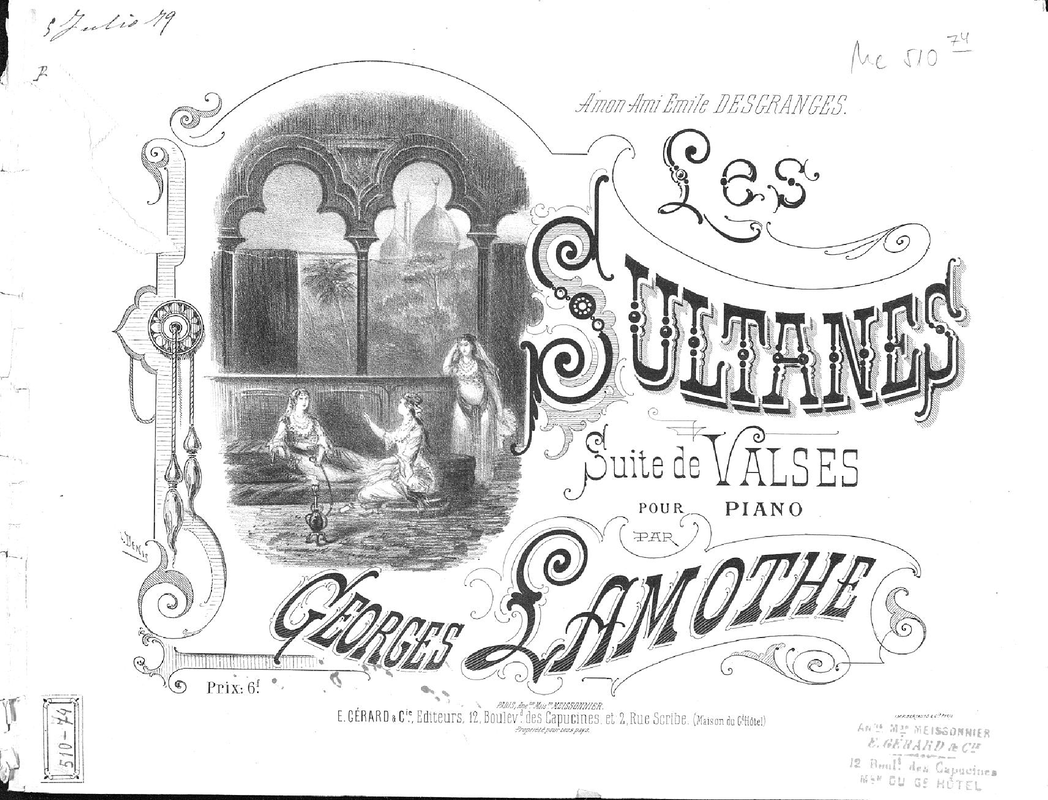 5 Julio 79
Mc 510 74
P.
A mon Ami Emile DESGRANGES.
Les
SULTANES
Suite de VALSES
POUR PIANO
PAR
GEORGES LAMOTHE
Prix: 6f
PARIS, Anne Mon MEISSONNIER.
E. GÉRARD & Cie, Editeurs, 12, Boulevd des Capucines, et 2, Rue Scribe. (Maison du Gd Hôtel)
Propriété pour tous pays.
510-74
Anne Mon MEISSONNIER
E. GÉRARD & Cie
12 Boult des Capucines
Mson DU Gd HÔTEL